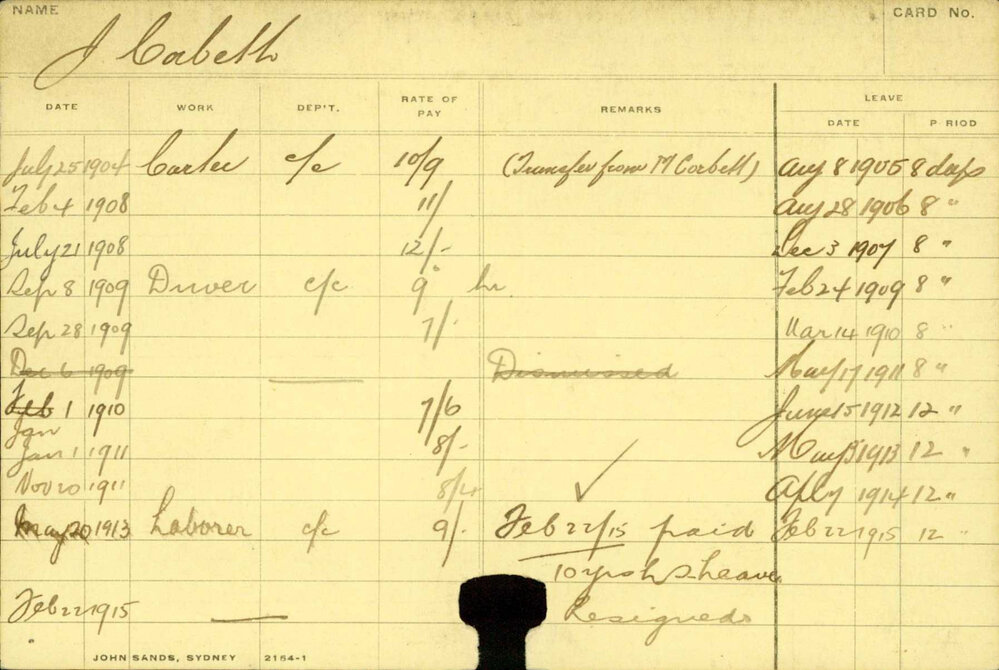 NAME
CARD No.
J Corbett
DATE WORK DEP'T. RATE OF PAY REMARKS LEAVE
DATE P RIOD
July 25 1904 Carter c/c 10/9 (Transfer from M Corbett) Aug 8 1905 8 days
Feb 4 1908 11/ Aug 28 1906 8 "
July 21 1908 12/- Dec 3 1907 8 "
Sep 8 1909 Driver c/c 9 hr. Feb 24 1909 8 "
Sep 28 1909 7/- Mar 14 1910 8 "
Dec 6 1909 Dismissed May 17 1911 8 "
Feb 1 1910 7/6 June 15 1912 12 "
Jan
Jan 1 1911 8/- May 1913 12 "
Nov 20 1911 8/4 Apl 7 1914 12 "
May 20 1913 Laborer c/c 9/- Feb 22/15 paid Feb 22 1915 12 "
10 yrs Leave
Feb 22 1915 Resigned
JOHN SANDS, SYDNEY 2154-1